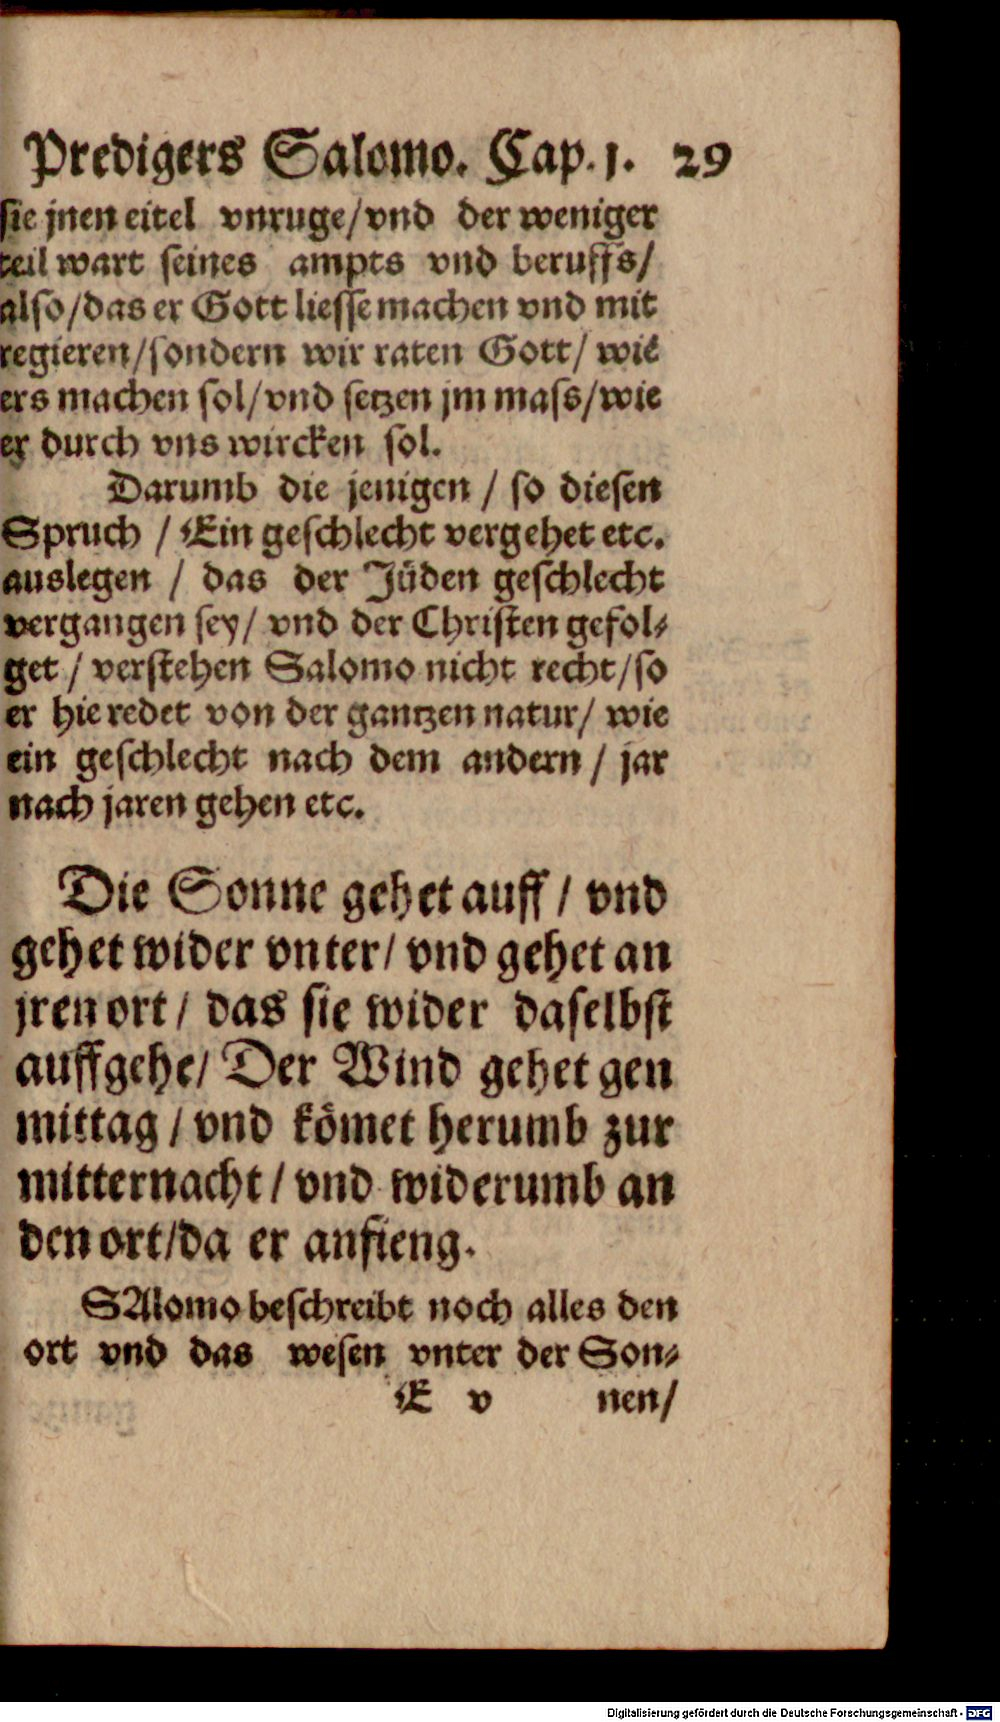 Predigers Salomo. Cap. 1. 29
sie jnen eitel vnruge/vnd der weniger
teil wart seines ampts vnd beruffs/
also/das er Gott liesse machen vnd mit
regieren/sondern wir raten Gott/ wie
ers machen sol/vnd setzen jm mass/wie
er durch vns wircken sol.
Darumb die jenigen / so diesen
Spruch / Ein geschlecht vergehet etc.
auslegen / das der Jüden geschlecht
vergangen sey/ vnd der Christen gefol-
get / verstehen Salomo nicht recht/so
er hie redet von der gantzen natur/ wie
ein geschlecht nach dem andern / jar
nach jaren gehen etc.
Die Sonne gehet auff / vnd
gehet wider vnter/ vnd gehet an
jren ort / das sie wider daselbst
auffgehe/ Der Wind gehet gen
mittag / vnd kömet herumb zur
mitternacht / vnd widerumb an
den ort/da er anfieng.
SAlomo beschreibt noch alles den
ort vnd das wesen vnter der Son-
E v nen/
Digitalisierung gefördert durch die Deutsche Forschungsgemeinschaft - DFG